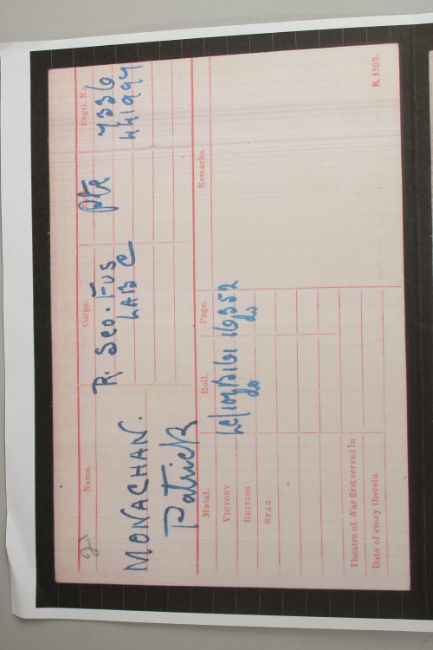 Name. Corps. Regtl. No.
MONACHAN. R. Sco. Fus Pte 7336
LAB C 441997
Patrick
Medal. Roll. Page. Remarks.
VICTORY 16352
BRITISH do do
STAR
Theatre of War first served in
Date of entry therein
K 1380.